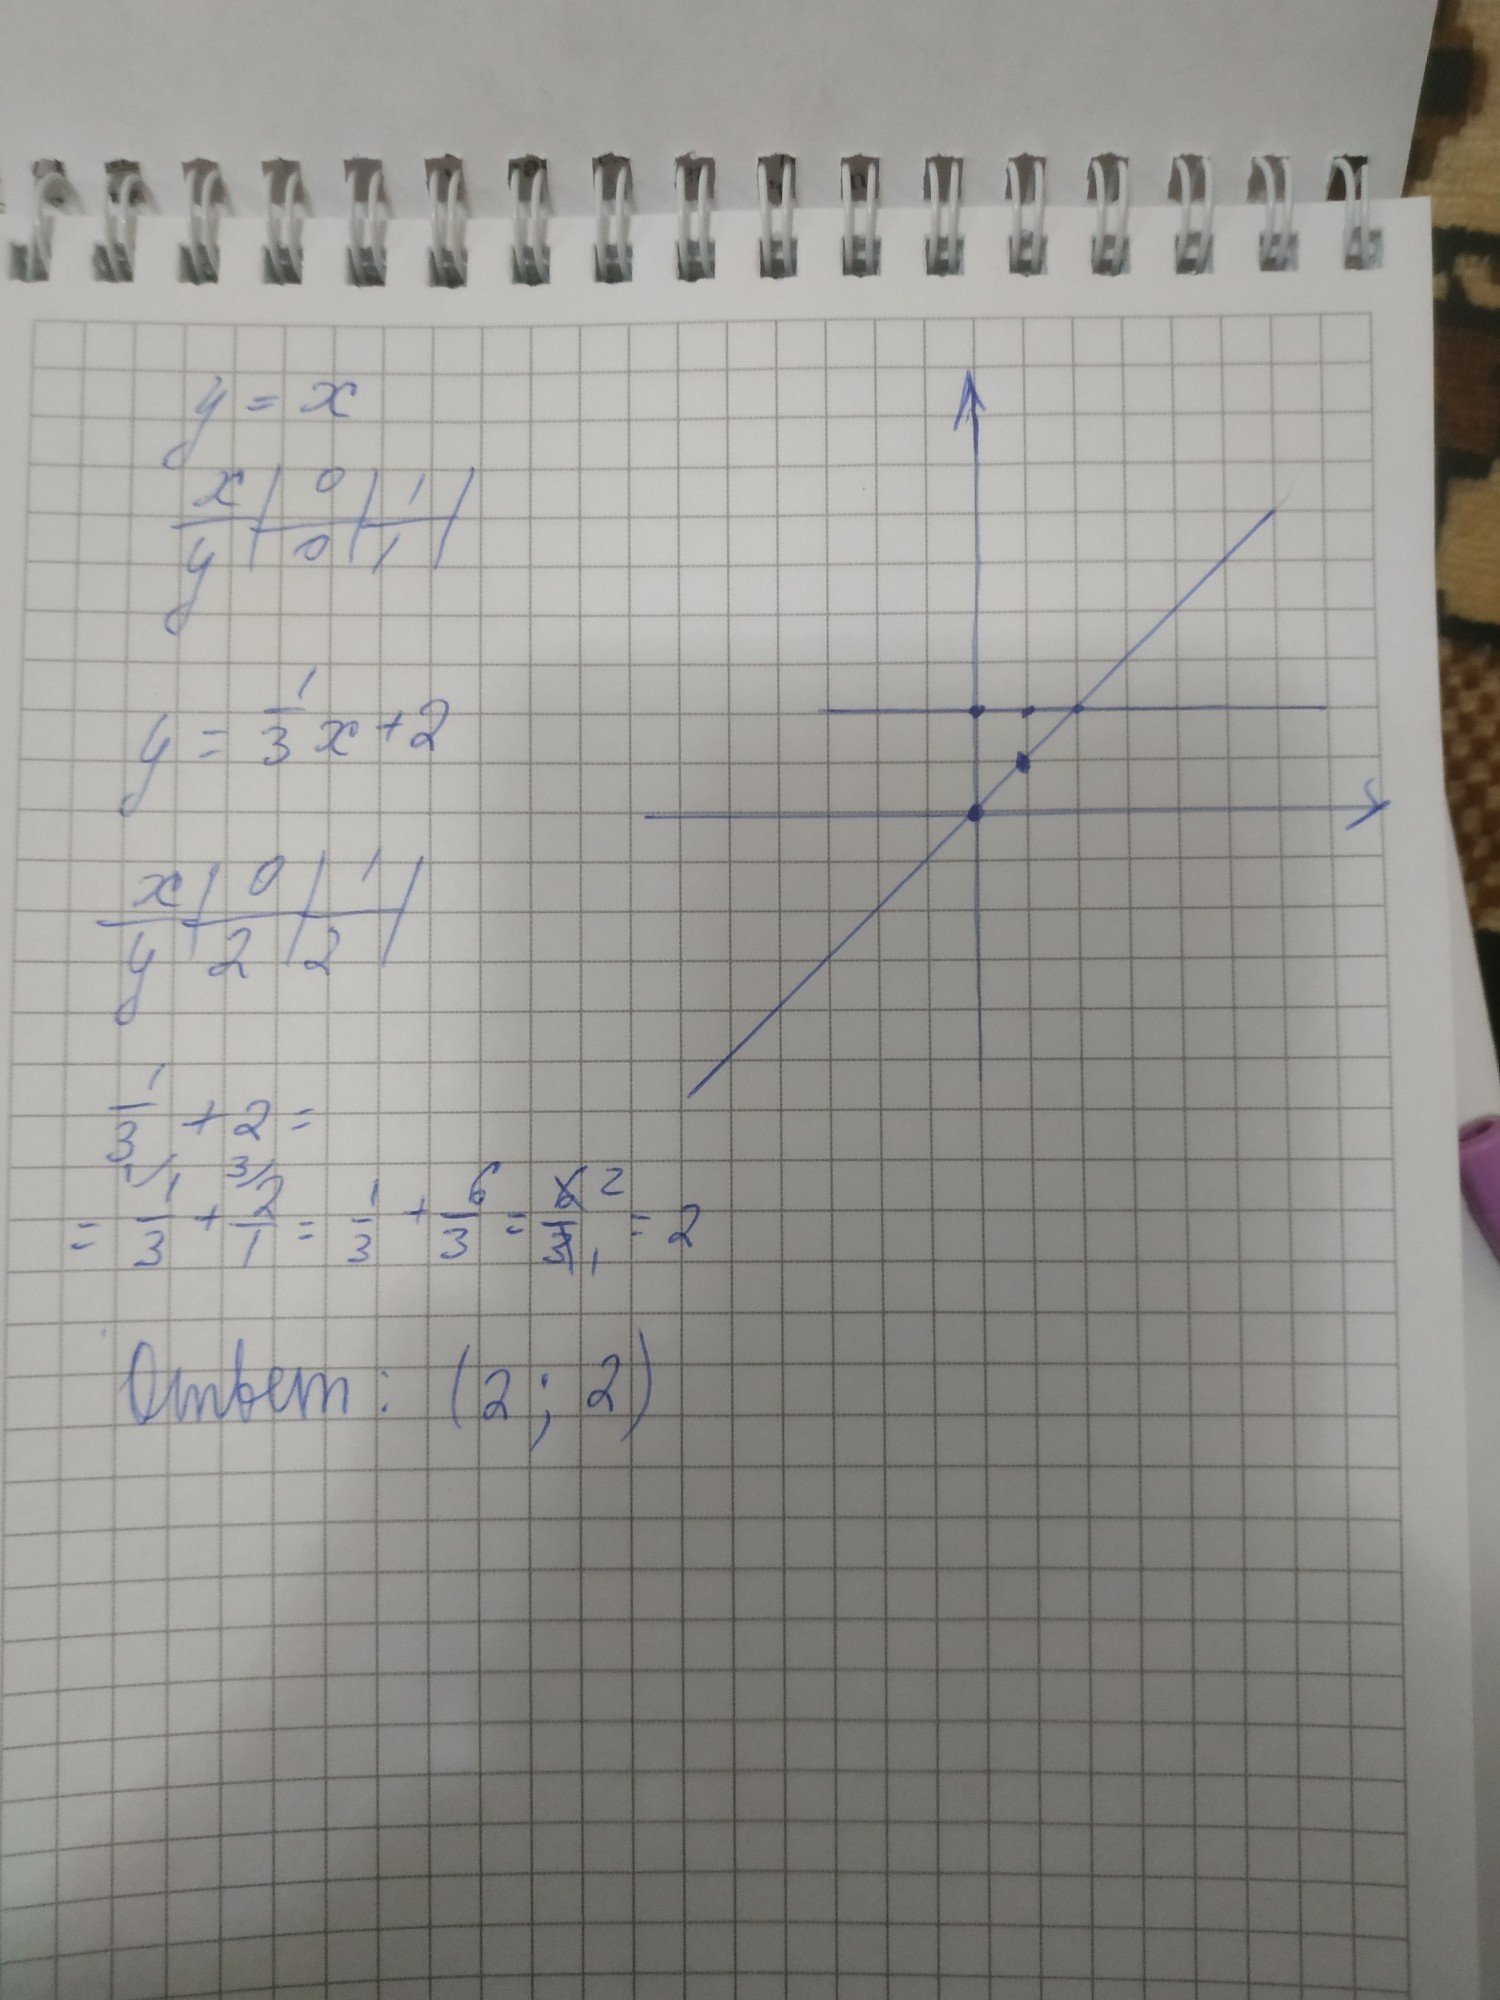 y = x
x | 0 | 1 |
y | 0 | 1 |
y = 1/3 x + 2
x | 0 | 1 |
y | 2 | 2 |
1/3 + 2 =
= 1/3 + 2/1 = 1/3 + 6/3 = 6/3 = 2
Ответ: (2; 2)